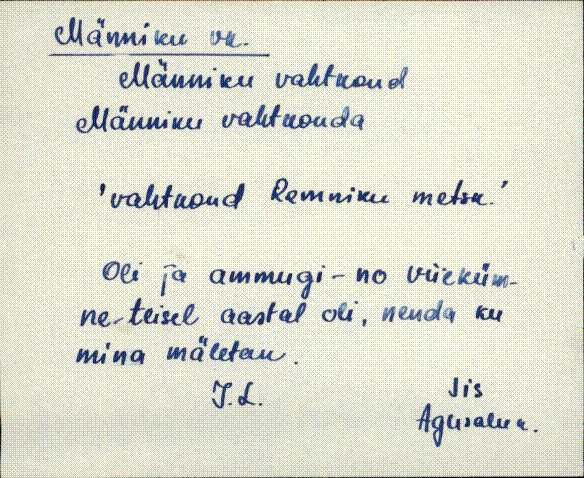 Männiku vk.
Männiku vahtkond
Männiku vahtkonda
'vahtkond Remniku metsk.'
Oli ja ammugi - no viieküm-
ne-teisel aastal oli, nenda ku
mina mäletan.
I.L.
Jis
Agusalu k.